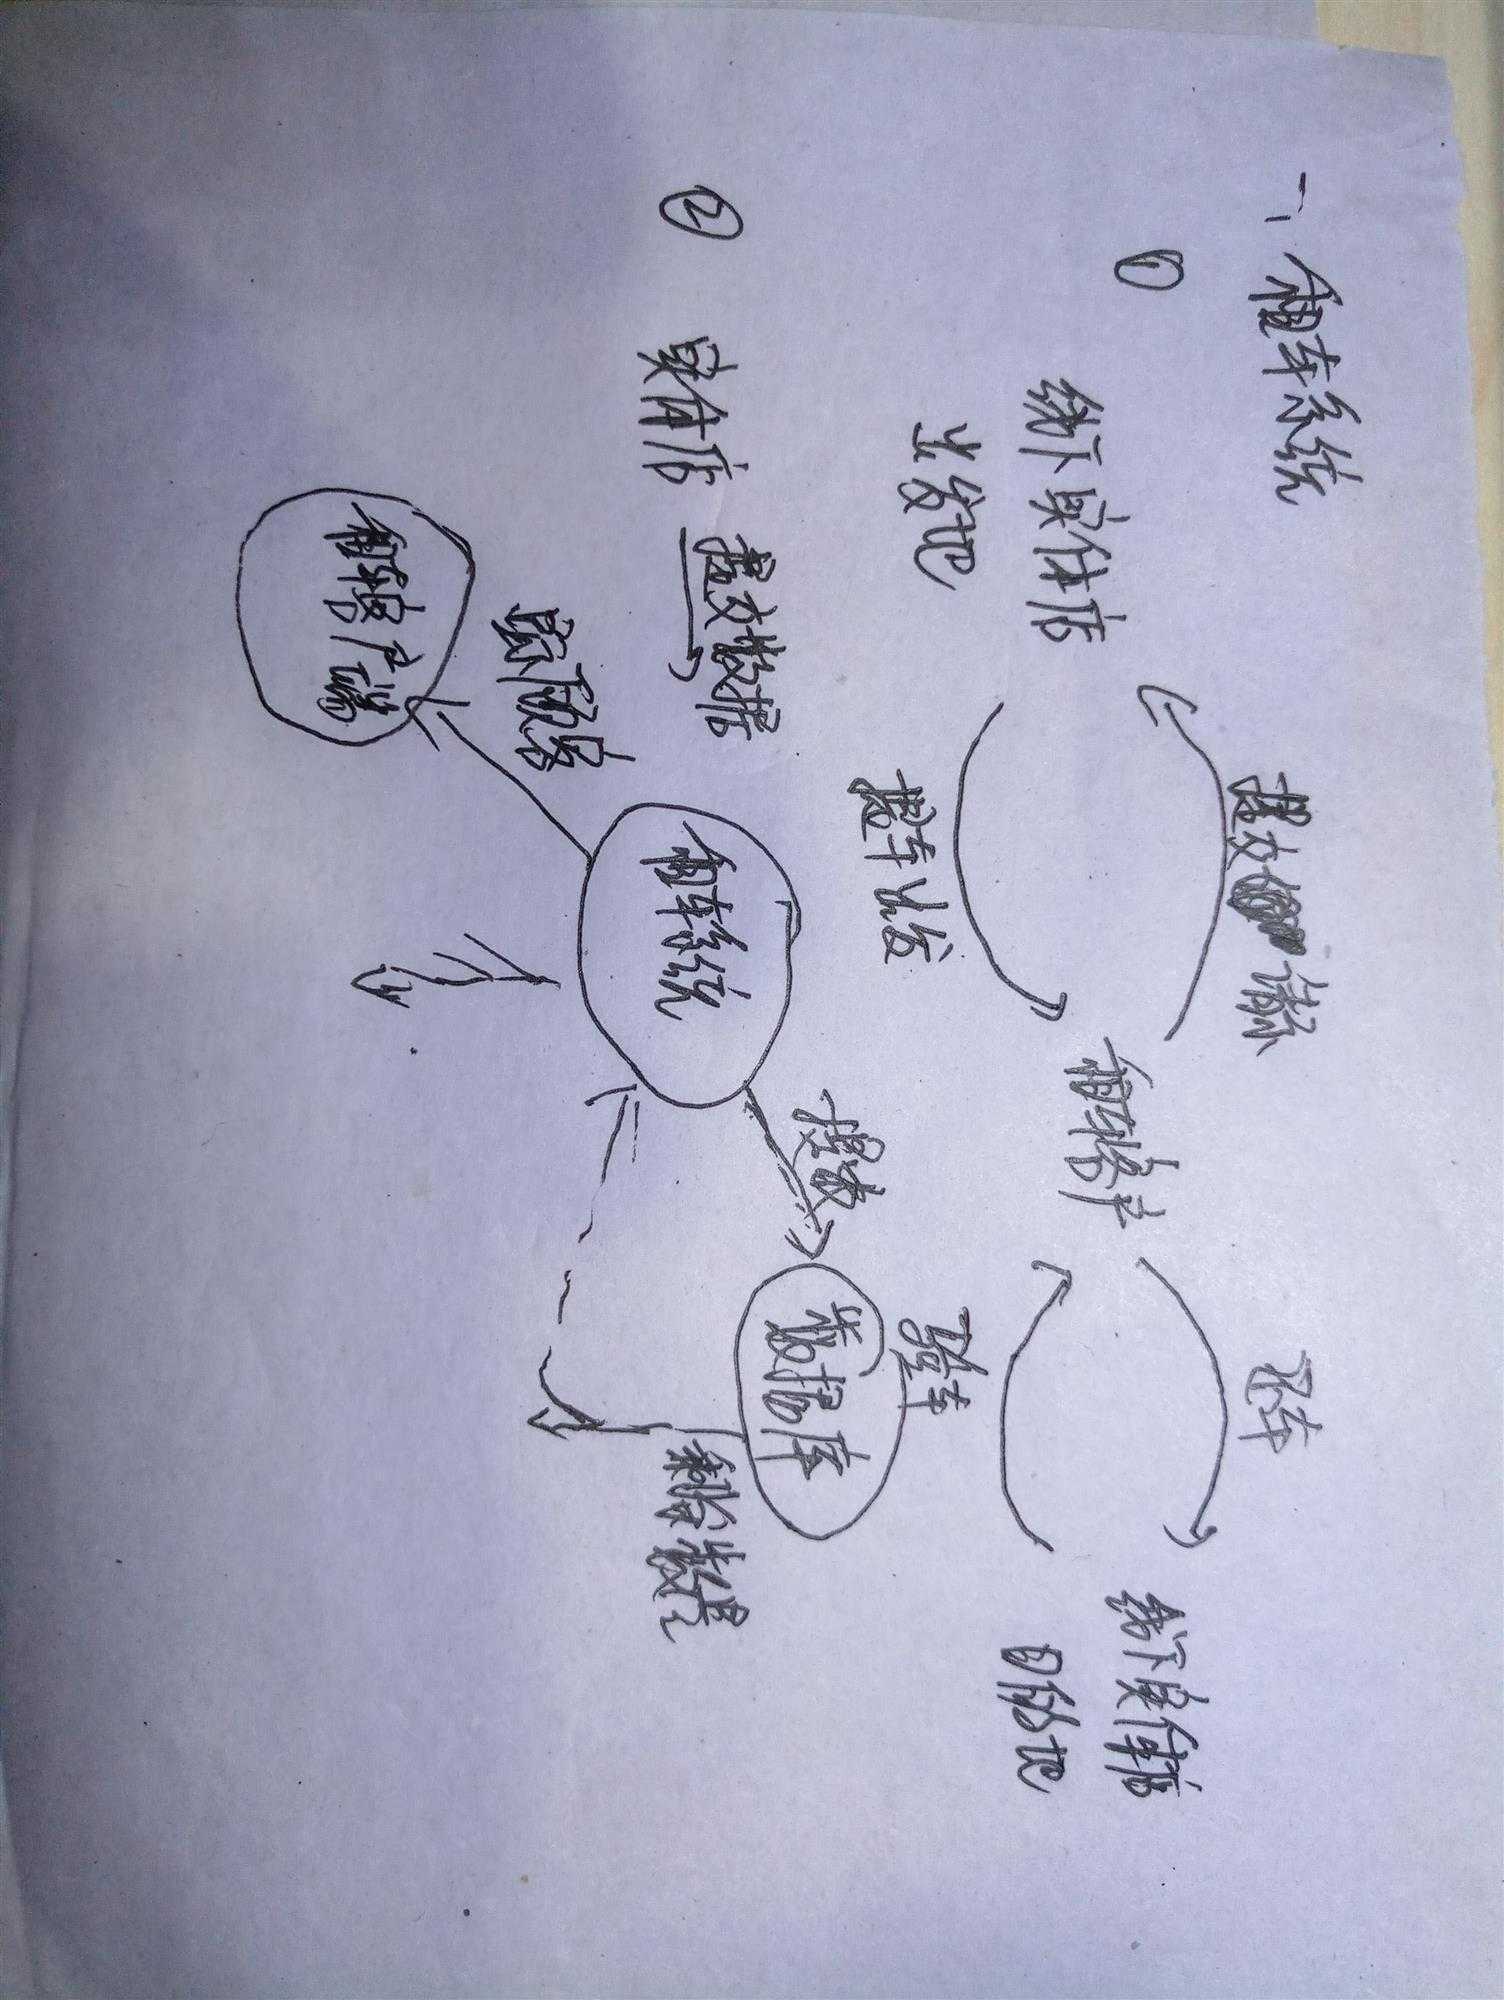 一、租车系统
①
提交 请示
还车
线下实体店
出发地
租车客户
线下实体店
目的地
提车出发
验车
②
实体店
提交数据
租车系统
提交
数据库
显示
租车客户端
剩余数量